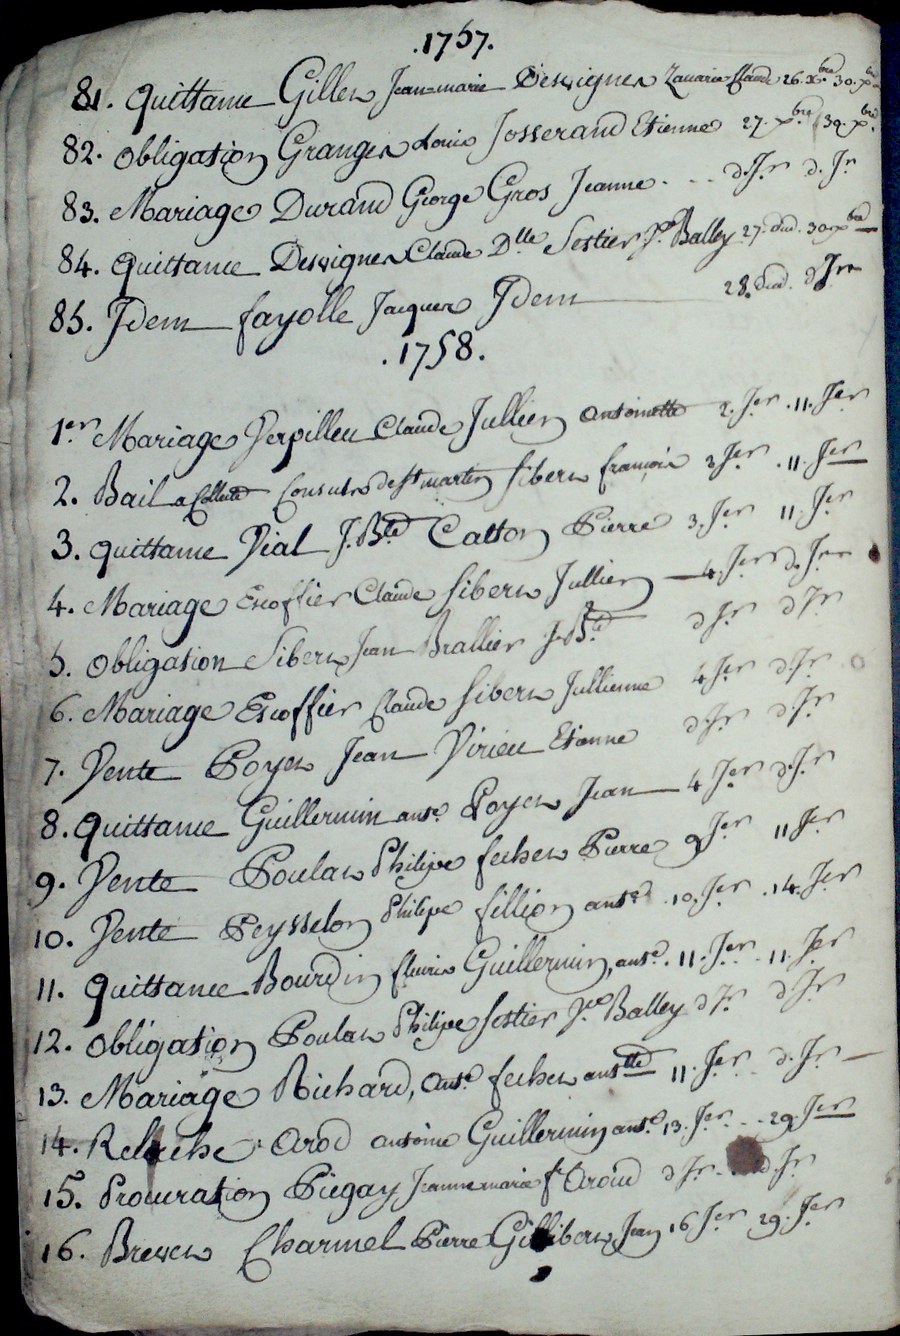 .1757.
81. Quittance Gilles Jean-marie Desvignes Zacarie Claude 26. Xbre 30. Xbre
82. Obligation Granges Louis Josserand Etienne 27. Xbre 30. Xbre
83. Mariage Durand George Gros Jeanne - - - d. Jr d. Jr
84. Quittance Desvignes Claude Dlle Sestier Ve Balley 27. dud. 30 Xbre
85. Idem fayolle Jacques Idem 28. dud. d Jr
.1758.
1er Mariage Verpilleu Claude Jullien Antoinette 2. Jer .11. Jer
2. Bail a Collecte Consuls de St martin Sibert francois 3 Jer .11. Jer
3. Quittance Vial J. Bte Catton Pierre 3. Jer 11. Jer
4. Mariage Escoffier Claude Sibert Jullien 4. Jer d. Jr
5. Obligation Sibert Jean Brallier J. Bte d Jr d Jr
6. Mariage Escoffier Claude Sibert Jullienne 4 Jer d. Jr
7. Vente Poyet Jean Virieu Etienne d. Jr d. Jr
8. Quittance Guillermin ante Poyet Jean 4 Jer d. Jr
9. Vente Poulat Philipe fechet Pierre 9 Jer 11 Jer
10. Vente Peysselon Philipe fillion ante .10. Jer .14. Jer
11. Quittance Bourdin fleurie Guillermin, ante. 11. Jer - 11. Jer
12. Obligation Poulat Philipe Sestier Ve Balley d Jr d Jr
13. Mariage Richard, Ante fechet antte 11. Jer - - d. Jr
14. Relache Arod antoine Guillermin ante. 13. Jer - - 29. Jer
15. Procuration Piegay Jeanne marie fe Aroud d Jr - - d Jr
16. Brevet Charmet Pierre Gillibert Jean 16 Jer 29. Jer